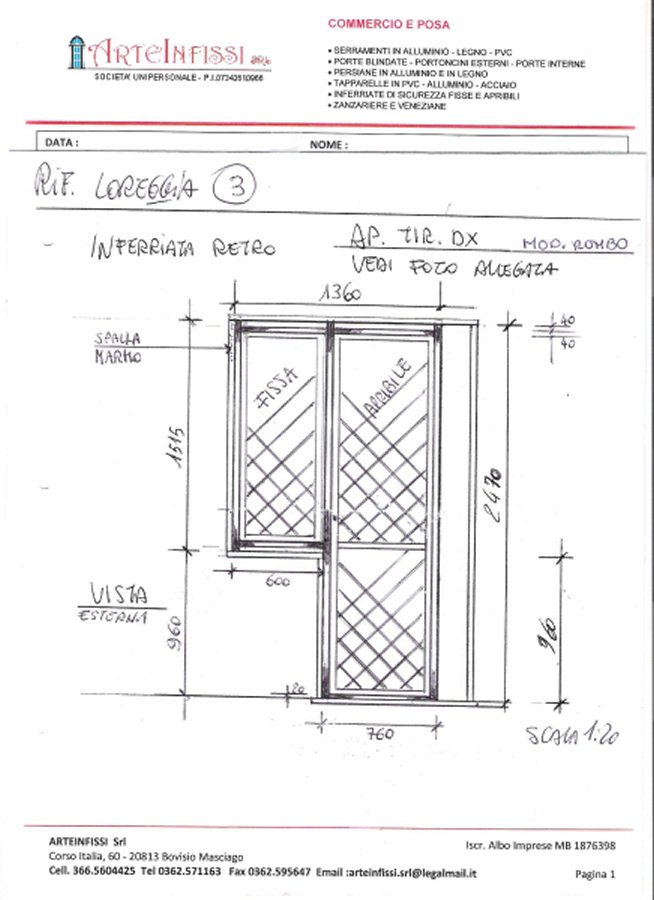 ARTEINFISSI SRL
SOCIETA' UNIPERSONALE - P.I.07340510966
COMMERCIO E POSA
• SERRAMENTI IN ALLUMINIO - LEGNO - PVC
• PORTE BLINDATE - PORTONCINI ESTERNI - PORTE INTERNE
• PERSIANE IN ALLUMINIO E IN LEGNO
• TAPPARELLE IN PVC - ALLUMINIO - ACCIAIO
• INFERRIATE DI SICUREZZA FISSE E APRIBILI
• ZANZARIERE E VENEZIANE
DATA : NOME :
RIF. LOREGGIA 3
- INFERRIATA RETRO AP. TIR. DX MOD. ROMBO
VEDI FOTO ALLEGATA
1360
40
40
SPALLA
MARMO
FISSA
APRIBILE
1515
2470
600
VISTA
ESTERNA
960
960
20
760
SCALA 1:20
ARTEINFISSI Srl
Corso Italia, 60 - 20813 Bovisio Masciago
Cell. 366.5604425 Tel 0362.571163 Fax 0362.595647 Email :arteinfissi.srl@legalmail.it
Iscr. Albo Imprese MB 1876398
Pagina 1